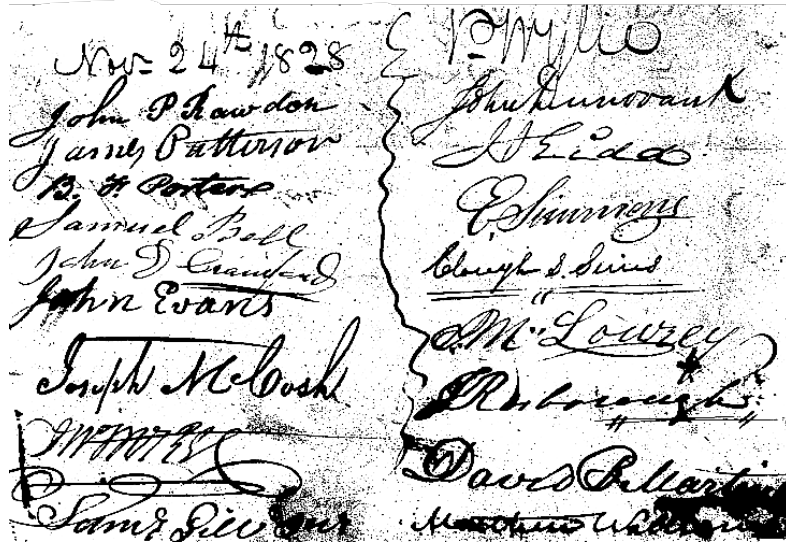 Nov. 24th, 1828
John P Rawdon
James Patterson
B. F Porter
Samuel Bell
John D Crawford
John Evans
Joseph McCosh
Saml Gill
John Dunovant
E. Simmons
Clough S. Sims
J. Mc Lourey
J Rosborough
David B. Martin
Matthew